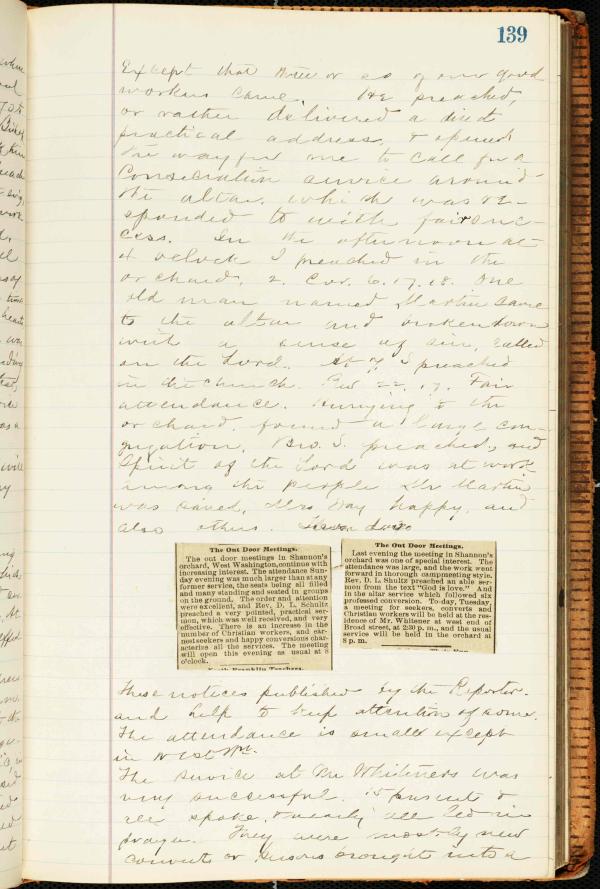 139
Except that three or so of our good
workers came. He preached,
or rather delivered a direct
practical address, & opened
the way for me to call for a
Consecration service around
the altar, which was re-
sponded to with fair suc-
cess. In the afternoon at
4 oclock I preached in the
orchard, 2. Cor. 6. 17. 18. One
old man named Martin came
to the altar and broken down
with a sense of sin, called
on the Lord. At 7 I preached
in the church. 22. 17. Fair
attendance. Hurrying to the
orchard, found a large con-
gregation. Bro. S. preached, and
Spirit of the Lord was at work
among the people Mr Martin
was saved, Mrs Day happy, and
also others.
The Out Door Meetings.
The out door meetings in Shannon's
orchard, West Washington, continue with
increasing interest. The attendance Sun-
day evening was much larger than at any
former service, the seats being all filled
and many standing and seated in groups
on the ground. The order and attention
were excellent, and Rev. D. L. Schultz
preached a very pointed, practical ser-
mon, which was well received, and very
effective. There is an increase in the
number of Christian workers, and ear-
nest seekers and happy conversions char-
acterize all the services. The meeting
will open this evening as usual at 8
o'clock.
North Franklin Teachers.
The Out Door Meetings.
Last evening the meeting in Shannon's
orchard was one of special interest. The
attendance was large, and the work went
forward in thorough campmeeting style.
Rev. D. L. Shultz preached an able ser-
mon from the text "God is love." And
in the altar service which followed six
professed conversion. To-day, Tuesday,
a meeting for seekers, converts and
Christian workers will be held at the res-
idence of Mr. Whitener at west end of
Broad street, at 2:30 p. m., and the usual
service will be held in the orchard at
8 p. m.
These notices published by the Reporter.
and help to keep attention of some.
The attendance is small except
in West Wn.
The service at Mr Whiteners was
very successful. 15 present &
all spoke, & nearly all led in
prayer. They were mostly new
converts or persons brought into a